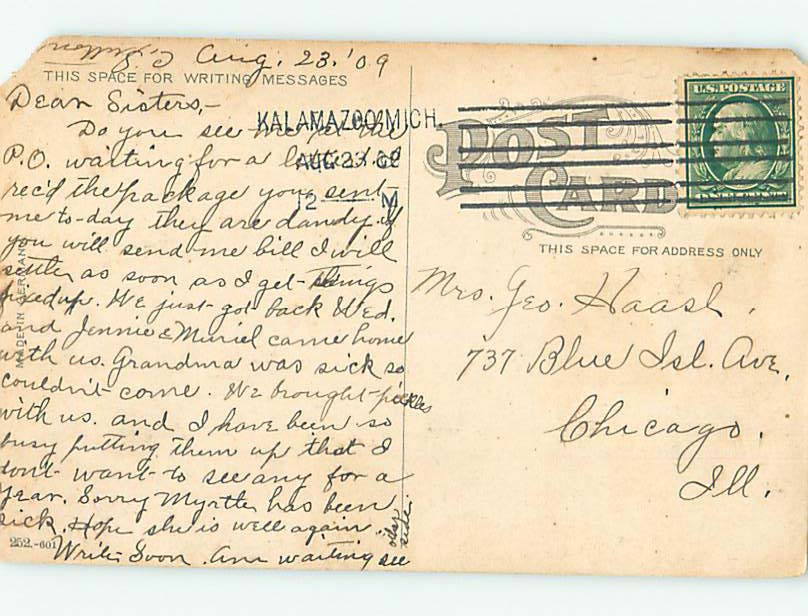 Aug. 23. '09
THIS SPACE FOR WRITING MESSAGES
Dear Sisters,-
Do you see me at the
P.O. waiting for a
rec'd the package you sent
me to-day they are dandy if
you will send me bill I will
settle as soon as I get things
fixed up. We just got back Wed.
and Jennie & Muriel came home
with us. Grandma was sick so
couldn't come. We brought pickles
with us. and I have been so
busy putting them up that I
don't want to see any for a
year. Sorry Myrtle has been
sick. Hope she is well again
Write Soon. Am waiting see
other side.
252.-601
MADE IN GERMANY
KALAMAZOO MICH.
AUG 23
12 M
POST CARD
U.S. POSTAGE
THIS SPACE FOR ADDRESS ONLY
Mrs. Geo. Haash.
737 Blue Isl. Ave.
Chicago.
Ill.